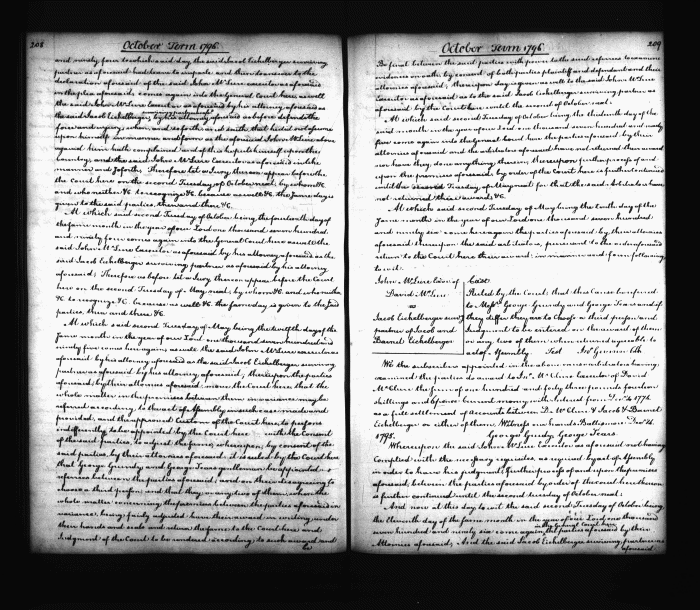 208
October Term 1796
and ninety four to which said day the said Jacob Eichelberger surviving
partner as aforesaid had leave to imparle and then to answer to the
declaration aforesaid of the said John McLure Executor as aforesaid
in the plea aforesaid, comes again into the General Court here as well
the said John McLure Executor as aforesaid by his attorney aforesaid as
the said Jacob Eichelberger by his attorney aforesaid as before defends the
force and injury when and so forth and saith that he did not assume
upon himself in manner and form as the aforesaid John McLure above
against him hath complained and of this he puts himself upon the
Country, and the said John McLure Executor as aforesaid in like
manner and so forth. Therefore let a Jury thereon appear before the
Court here on the second Tuesday of October next, by whom &c
and who neither &c to recognize &c because as well &c the same day is
given to the said parties, there and then &c.
At which said second Tuesday of October being the fourteenth day of
the same month in the year of our Lord one thousand seven hundred
and ninety four come again into the General Court here as well the
said John McLure Executor as aforesaid by his attorney aforesaid as the
said Jacob Eichelberger surviving partner as aforesaid by his attorney
aforesaid; Therefore as before let a Jury thereon appear before the Court
here on the second Tuesday of May next; by whom &c and who neither
&c to recognize &c because as well &c the same day is given to the said
parties, there and then &c.
At which said second Tuesday of May being the twelfth day of the
same month in the year of our Lord one thousand seven hundred and
ninety five comes here again as well the said John McLure Executor as
aforesaid by his attorney aforesaid as the said Jacob Eichelberger surviving
partner as aforesaid by his attorney aforesaid; thereupon the parties
aforesaid, by their attornies aforesaid, move the Court here that the
whole matter in the premises between them in variance may be
referred according to the act of Assembly in such case made and
provided, and the approved Custom of the Court here, to persons
indifferently to be appointed by the Court here with the Consent
of the said parties, to adjust the same, whereupon, by consent of the
said parties by their attornies aforesaid, it is ruled by the Court here
that George Grundy and George Sears gentlemen be appointed
referees between the parties aforesaid; and on their disagreeing to
choose a third person and that they, or any two of them, when the
whole matter concerning the premises between the parties aforesaid in
variance being fairly adjusted have their award in writing under
their hands and seals and return the same to the Court here and
Judgment of the Court to be rendered according to such award and
to
209
October Term 1796
Be final between the said parties with power to the said referees to examine
evidences on oath, by consent of both parties plaintiff and defendant and their
attornies aforesaid; the same day is given as well to the said John McLure
Executor as aforesaid as to the said Jacob Eichelberger surviving partner as
aforesaid by the Court here until the second of October next.
At which said second Tuesday of October being the thirteenth day of the
said month in the year of our Lord one thousand seven hundred and ninety
five come again into the General Court here the parties aforesaid by their
attornies aforesaid and the arbitrators aforesaid have not returned their award
nor have they done any thing therein, thereupon further process of and
upon the premises aforesaid by order of the Court here is further continued
until the second Tuesday of May next for that the said Arbitrators have
not returned their award &c.
At which said second Tuesday of May being the tenth day of the
same month in the year of our Lord one thousand seven hundred
and ninety six come here again the parties aforesaid by their attornies
aforesaid thereupon the said arbitrators, persons in the order aforesaid
return to the Court here their award in manner and form following
to wit.
John McLure Exor of
David McLure
vs
Jacob Eichelberger surv'g
partner of Jacob and
Barnet Eichelberger
Case
Ruled by the Court, that this Cause be referred
to Messrs George Grundy and George Sears and if
they differ they are to choose a third person and
Judgment to be entered on the award of them
or any two of them when returned agreeable to
act of Assembly Test Jno Gwinn Clk
We the subscribers appointed in the aboveree consideration having
examined the parties do award to Jno McClure executor of David
McClure the sum of one hundred and forty three pounds fourteen
shillings and 6 pence Current money with Interest from Decr 14 1776
as a full settlement of Accounts between D. McClure & Jacob & Barnet
Eichelberger or either of them. Witness our hands Baltimore Decr 14
1795. George Grundy, George Sears
Whereupon the said John McLure Executor as aforesaid not having
Complied with the necessary requisites, as required by act of Assembly
in order to have his judgment, further process of and upon the premises
aforesaid, between the parties aforesaid by order of the Court here thereon
is further continued until the second Tuesday of October next.
And now at this day to wit the said second Tuesday of October being
the Eleventh day of the same month in the year of our Lord one thousand
seven hundred and ninety six come again into the General Court here the parties aforesaid by their
Attornies aforesaid; And the said Jacob Eichelberger surviving partner as
aforesaid